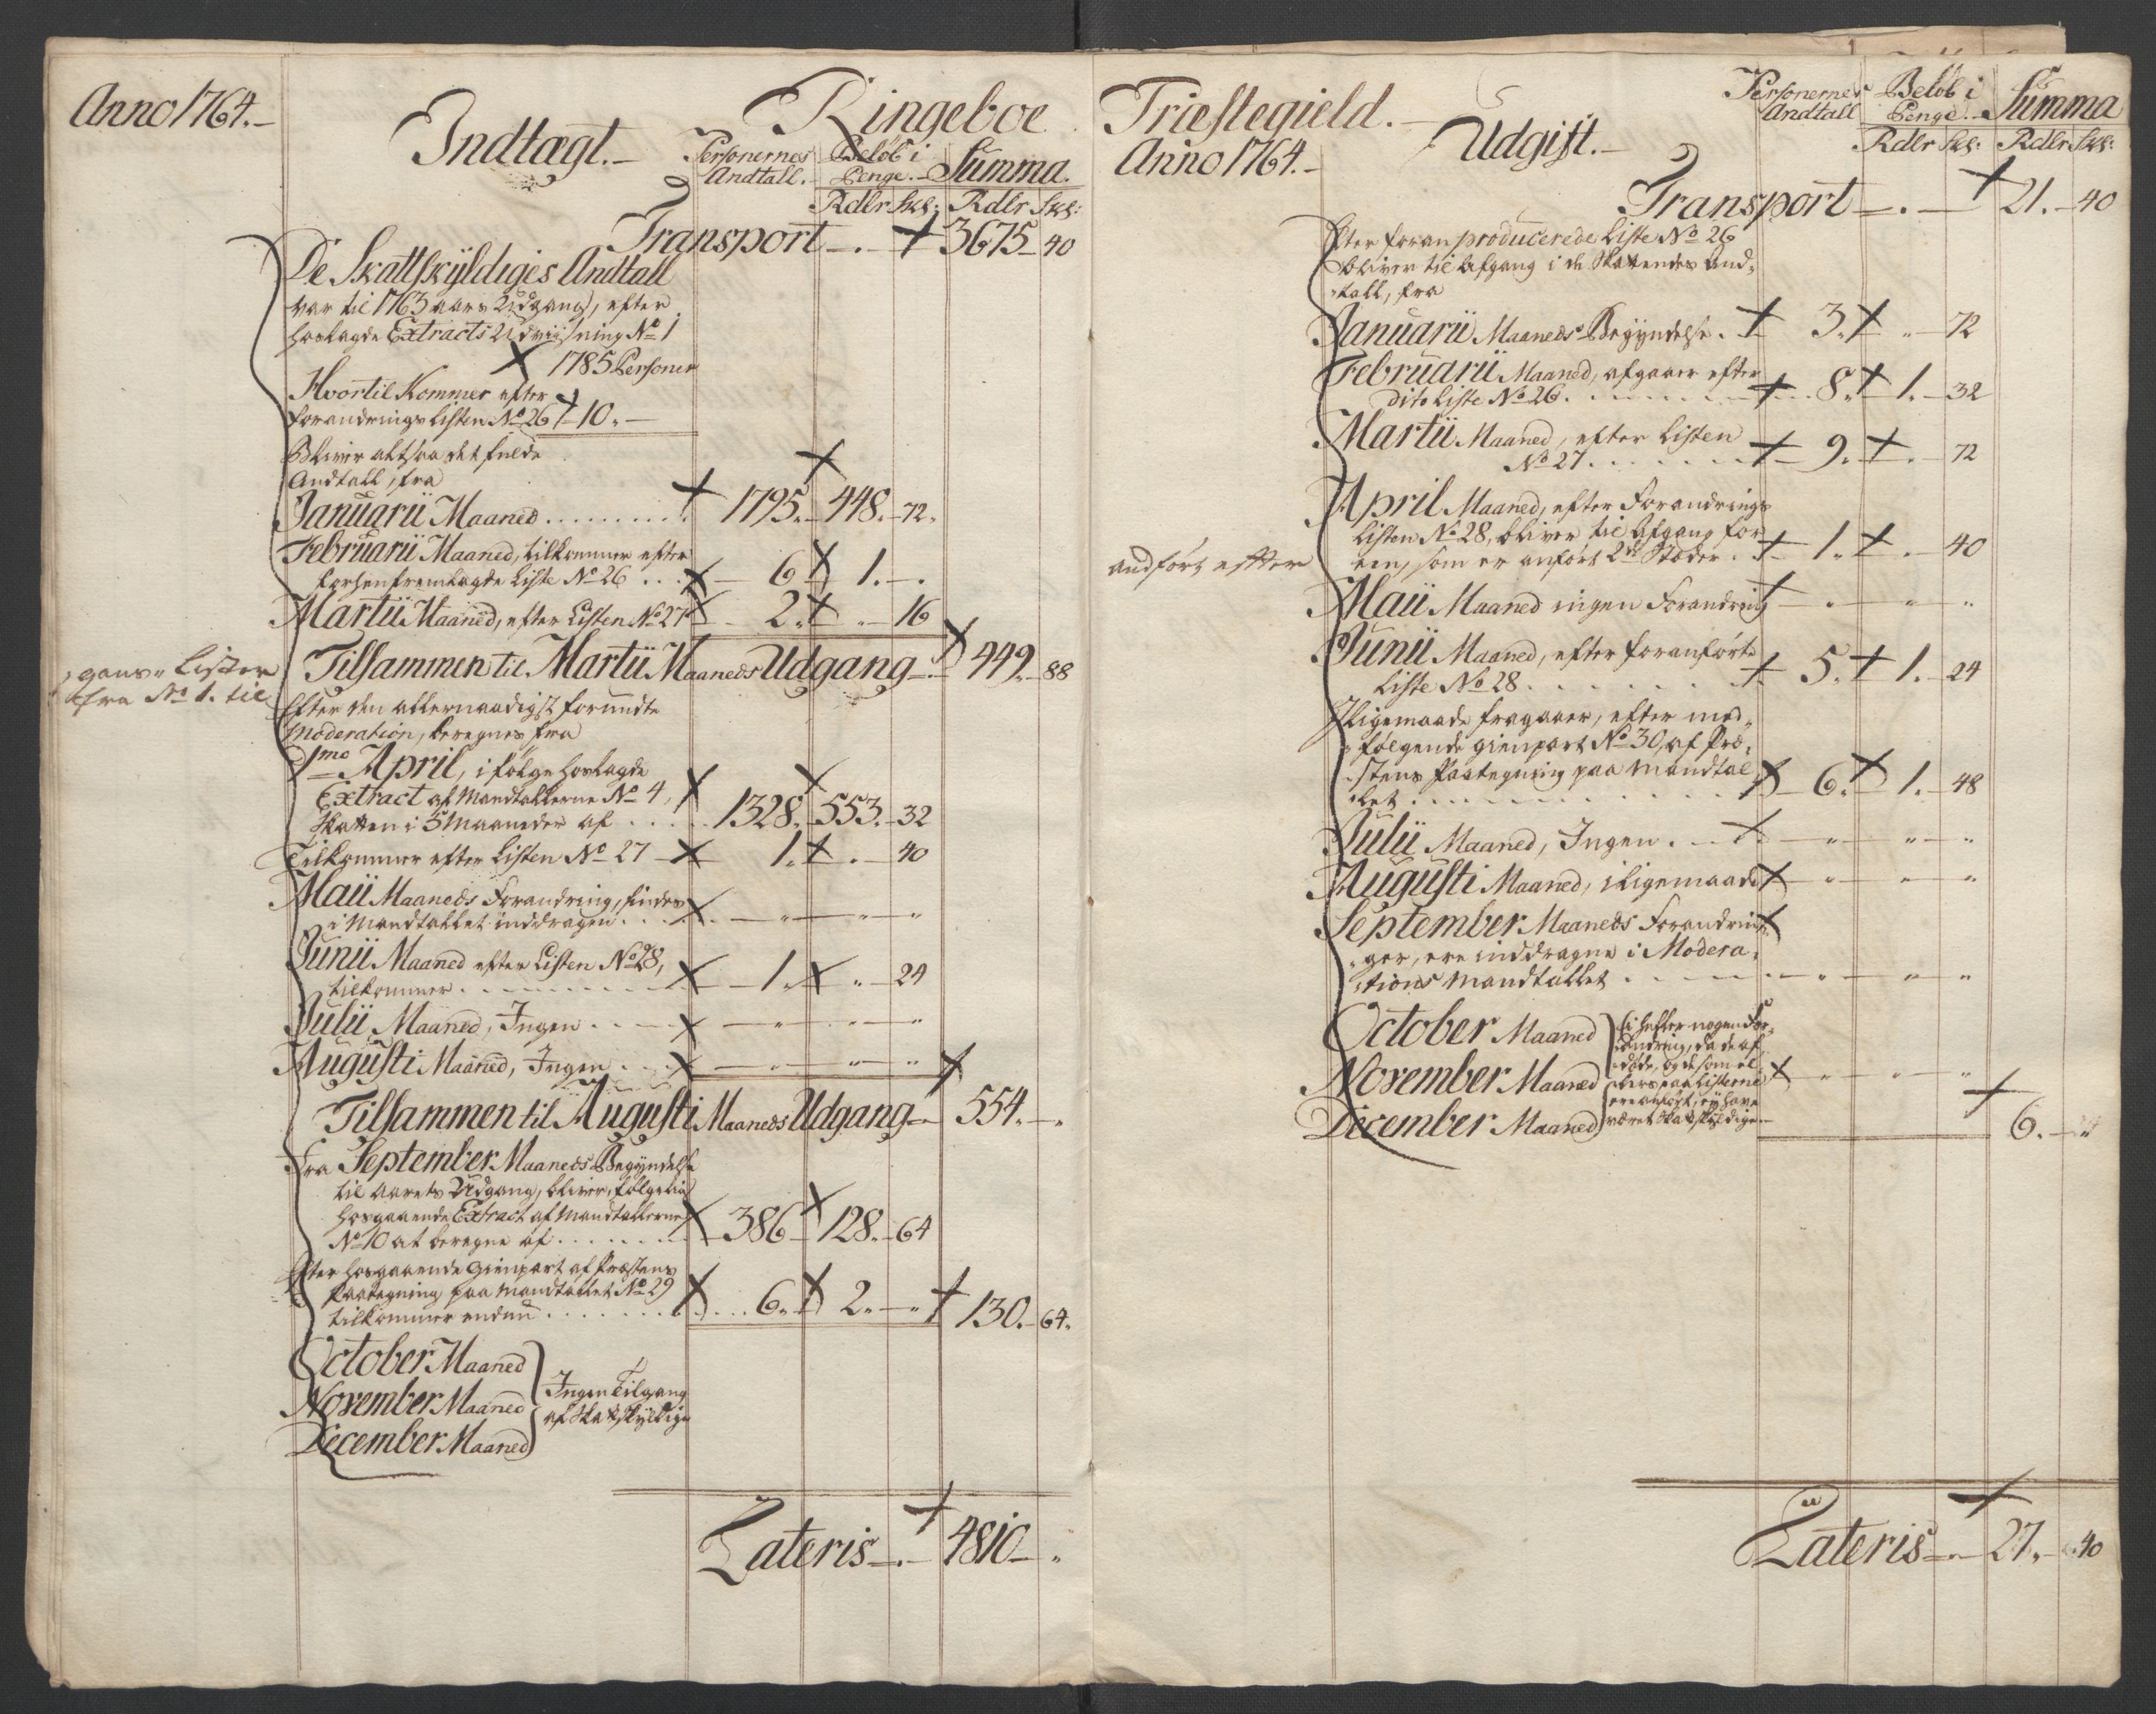 Anno 1764.
Indtægt.
Ringeboe
Personernes Andtall. Beløb i Penge. Summa.
Rdlr Skl: Rdlr Skl:
Transport 3675 40
De Skattskyldiges Andtall
var til 1763 aars Udgang, efter
hoslagde Extracts Udviisning No 1
1785 Personer
Hvortil Kommer efter
forandrings Listen No 26 10.
Bliver altsaa det fulde
Andtall, fra
Januarii Maaned 1795. 448. 72.
Februarii Maaned, tilkommer efter
forhen fremlagde Liste No 26 6 1. .
Martii Maaned, efter Listen No 27 2. „ 16
Tilsammen til Martii Maaneds Udgang 449. 88
gans Lister
fra No 1. til
Efter den allernaadigst forundte
Moderation, beregnes fra
1mo April, i følge hoslagde
Extract af Mandtallerne No 4,
Skatten i 5 Maaneder af 1328. 553. 32
Tilkommer efter Listen No 27 1. . 40
Maii Maaneds Forandring, findes
i Mandtallet inddragen „ „ „
Junii Maaned efter Listen No 28,
tilkommer 1. „ 24
Julii Maaned, Ingen „ „ „
Augusti Maaned, Ingen „ „ „
Tilsammen til Augusti Maaneds Udgang 554. .
Fra September Maaneds Begyndelse
til Aarets Udgang, bliver, følgelig
hosgaaende Extract af Mandtallerne
No 10 at beregne af 386 128. 64
Efter hosgaaende Gienpart af Præstens
Paategning paa Mandtallet No 29
tilkommer endnu 6. 2. „ 130. 64.
October Maaned
November Maaned
December Maaned
Ingen Tilgang
af Skattskyldige
Lateris 4810 „
Præstegield.
Anno 1764.
Udgift.
Personernes Andtall Beløb i Penge. Summa
Rdlr Skl: Rdlr Skl:
Transport 21. 40
Efter foran producerede Liste No 26
bliver til Afgang i de Skattendes And-
tall, fra
Januarii Maaneds Begyndelse. 3. „ 72
Februarii Maaned, afgaaer efter
dito Liste No 26. 8. 1. 32
Martii Maaned, efter Listen
No 27 9. . 72
April Maaned, efter Forandrings
Listen No 28, bliver til Afgang for
een, som er anført 2de Stæder. 1. . 40
andført efter
Maii Maaned ingen Forandring „ „ „
Junii Maaned, efter foranførte
Liste No 28 5. 1. 24
Iligemaade fragaaer, efter med-
følgende gienpart No 30, af Præ-
stens Paategning paa Mandtal-
let 6. 1. 48
Julii Maaned, Ingen „ „ „
Augusti Maaned, iligemaade „ „ „
September Maaneds Forandrin-
ger, ere inddragne i Modera-
tions Mandtallet „ „ „
October Maaned
November Maaned
December Maaned
nogen For-
andring, da de af-
døde, og de som el-
lers paa Listerne
ere anført, ey have
været Skatskyldige
„ „ „
6. „
Lateris 27. 40